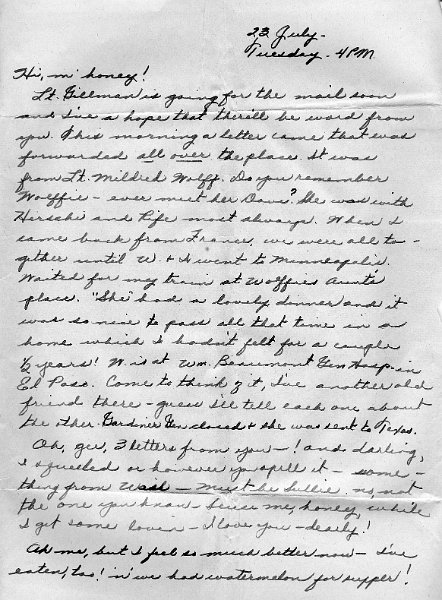 23 July -
Tuesday - 4PM
Hi, m' honey!
Lt. Gillman is going for the mail soon
and I've a hope that there'll be word from
you. This morning a letter came that was
forwarded all over the place. It was
from Lt. Mildred Wolff. Do you remember
Wolffie - ever meet her Dave? She was with
Hersch and Life most always. When I
came back from France, we were all to-
gether until W. + H went to Minneapolis.
Waited for my train at Wolffies Aunts
place. "She" had a lovely dinner and it
was so nice to pass all that time in a
home which I hadn't felt for a couple
½ years! W. is at Wm. Beaumont Gen Hosp. in
El Paso. Come to think of it, I've another old
friend there - guess I'll tell each one about
the other. Gardiner Gen closed & she was sent to Texas.
Oh, gee, 3 letters from you - ! and darling,
I squeeled or however you spell it - some-
thing from Wash - must be Lillie. no, not
the one you know - 'scuse me, honey, while
I get some lovin - I love you - dearly!
Ah me, but I feel so much better now - I've
eaten, too! 'n' we had watermelon for supper!